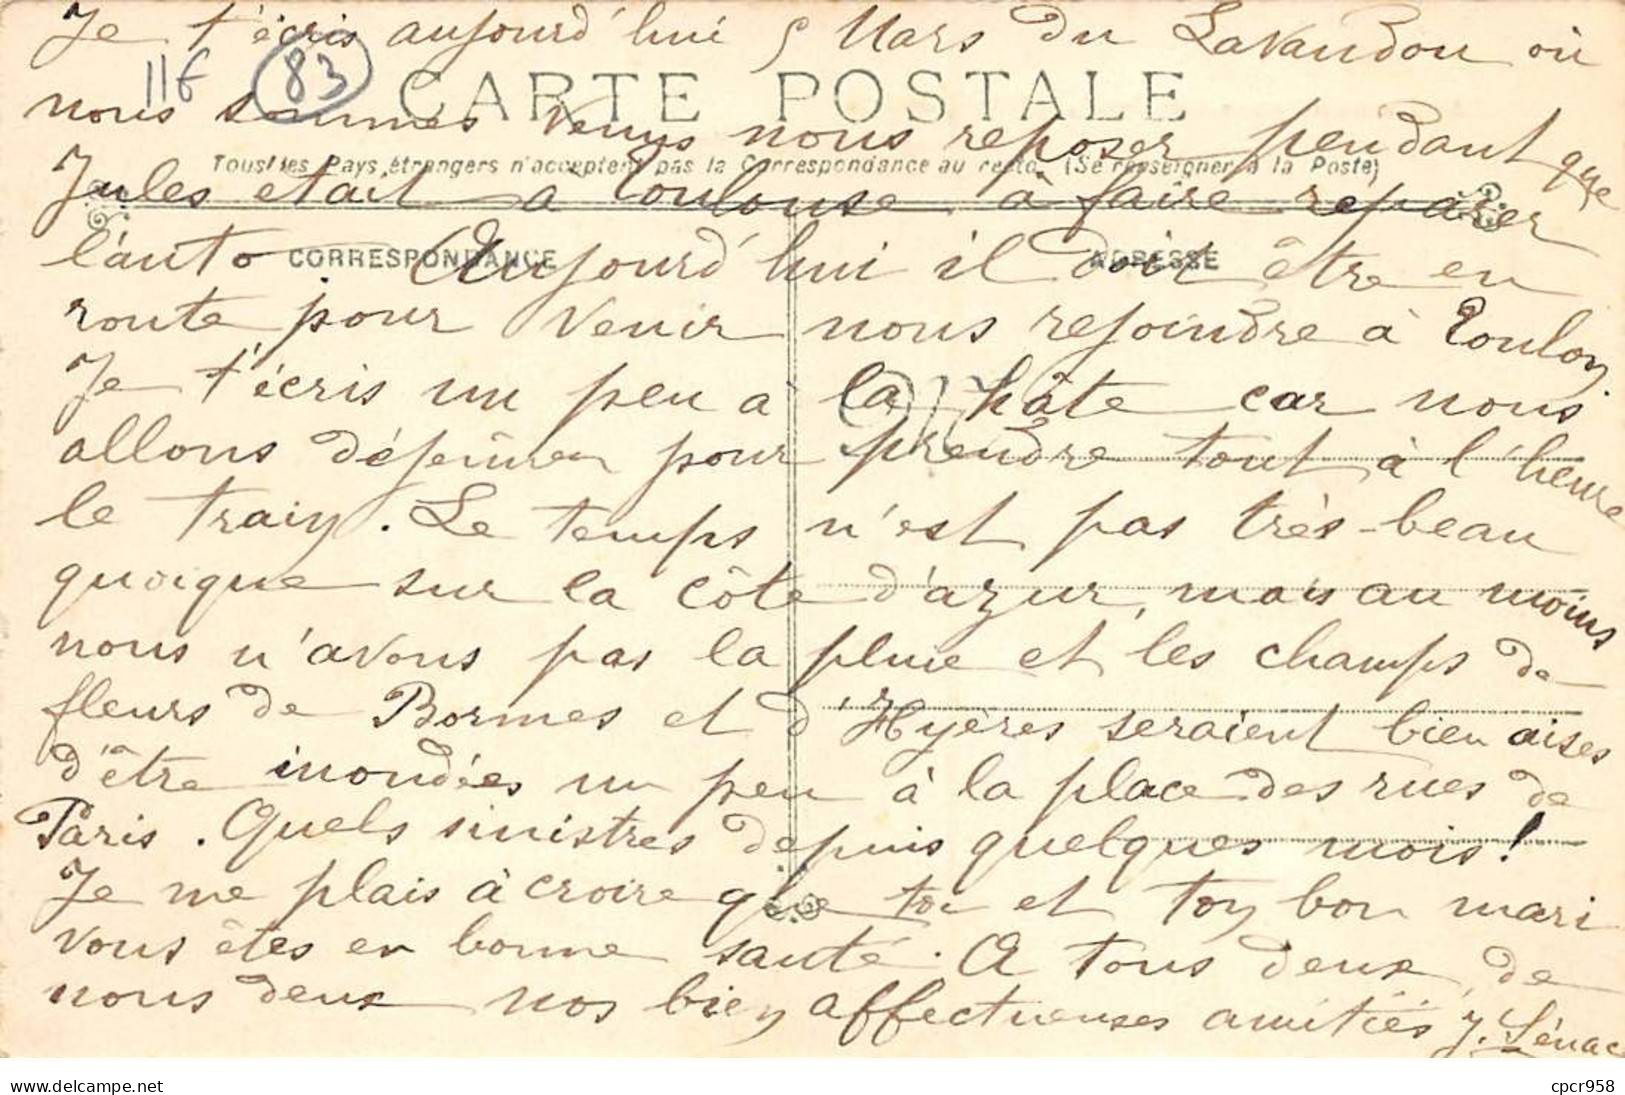 Je t'écris aujourd'hui 5 Mars du Lavandou où
11€ 83
CARTE POSTALE
nous sommes venus nous reposer pendant que
Tous les Pays étrangers n'acceptent pas la Correspondance au recto. (Se renseigner à la Poste)
Jules était à Toulouse à faire réparer
CORRESPONDANCE
ADRESSE
l'auto Aujourd'hui il doit être en
route pour venir nous rejoindre à Toulon.
Je t'écris un peu à la hâte car nous
allons déjeûner pour prendre tout à l'heure
le train. Le temps n'est pas très-beau
quoique sur la côte d'azur, mais au moins
nous n'avons pas la pluie et les champs de
fleurs de Bormes et d'Hyères seraient bien aises
d'être inondées un peu à la place des rues de
Paris. Quels sinistres depuis quelques mois!
Je me plais à croire que toi et ton bon mari
vous êtes en bonne santé. A tous deux, de
nous deux nos bien affectueuses amitiés J. Sénac
delcampe.net
cpcr958